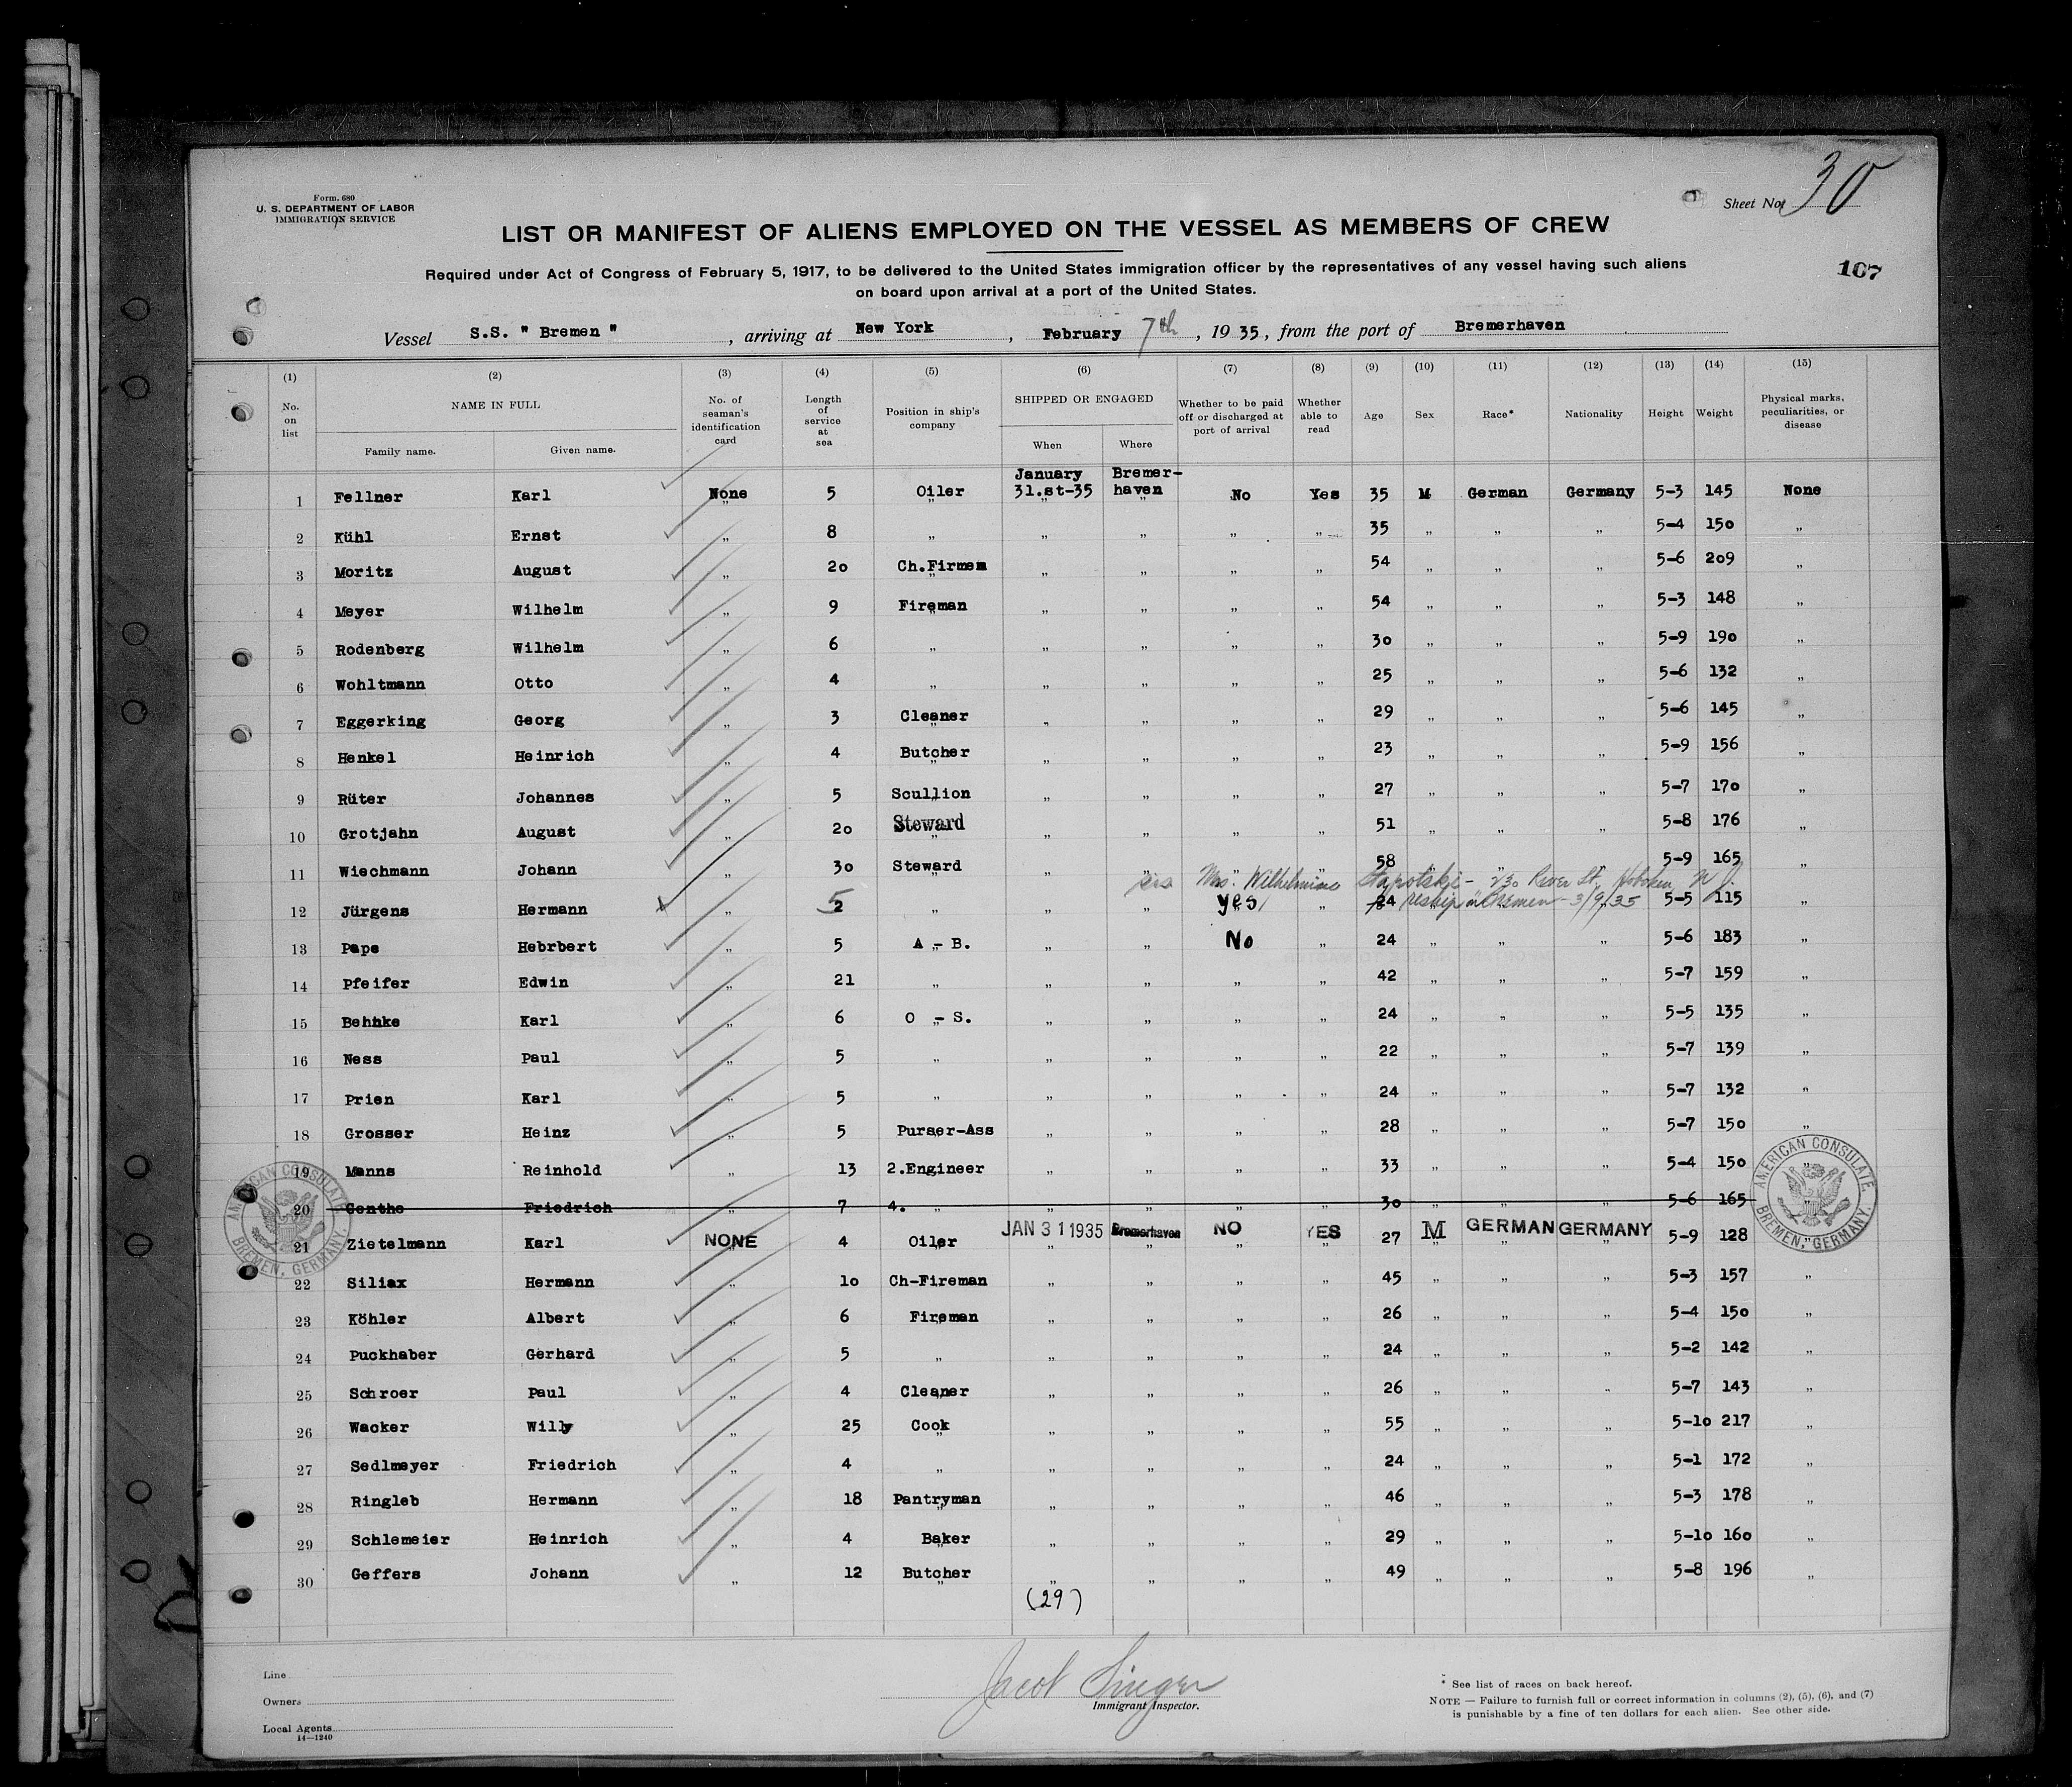 Form 680
U. S. DEPARTMENT OF LABOR
IMMIGRATION SERVICE
Sheet No. 30
LIST OR MANIFEST OF ALIENS EMPLOYED ON THE VESSEL AS MEMBERS OF CREW
Required under Act of Congress of February 5, 1917, to be delivered to the United States immigration officer by the representatives of any vessel having such aliens
on board upon arrival at a port of the United States.
107
Vessel S.S. " Bremen ", arriving at New York, February 7th, 1935, from the port of Bremerhaven
(1) (2) (3) (4) (5) (6) (7) (8) (9) (10) (11) (12) (13) (14) (15)
No. on list NAME IN FULL Family name. Given name. No. of seaman's identification card Length of service at sea Position in ship's company SHIPPED OR ENGAGED When Where Whether to be paid off or discharged at port of arrival Whether able to read Age Sex Race* Nationality Height Weight Physical marks, peculiarities, or disease
1 Fellner Karl None 5 Oiler January 31.st-35 Bremer-haven No Yes 35 M German Germany 5-3 145 None
2 Kühl Ernst „ 8 „ „ „ „ „ 35 „ „ „ 5-4 150 „
3 Moritz August „ 20 Ch.Firmen „ „ „ „ 54 „ „ „ 5-6 209 „
4 Meyer Wilhelm „ 9 Fireman „ „ „ „ 54 „ „ „ 5-3 148 „
5 Rodenberg Wilhelm „ 6 „ „ „ „ „ 30 „ „ „ 5-9 190 „
6 Wohltmann Otto „ 4 „ „ „ „ „ 25 „ „ „ 5-6 132 „
7 Eggerking Georg „ 3 Cleaner „ „ „ „ 29 „ „ „ 5-6 145 „
8 Henkel Heinrich „ 4 Butcher „ „ „ „ 23 „ „ „ 5-9 156 „
9 Rüter Johannes „ 5 Scullion „ „ „ „ 27 „ „ „ 5-7 170 „
10 Grotjahn August „ 20 Steward „ „ „ „ 51 „ „ „ 5-8 176 „
11 Wiechmann Johann „ 30 Steward „ „ „ „ 58 „ „ „ 5-9 165 „
Mrs. Wilhelmine - 230 River St, Hoboken, N J.
12 Jürgens Hermann „ 5 2 „ „ „ yes „ 24 reship Bremen - 3/9/35 5-5 115 „
13 Pape Hebrbert „ 5 A - B. „ „ No „ 24 „ „ „ 5-6 183 „
14 Pfeifer Edwin „ 21 „ „ „ „ „ 42 „ „ „ 5-7 159 „
15 Behnke Karl „ 6 O - S. „ „ „ „ 24 „ „ „ 5-5 135 „
16 Ness Paul „ 5 „ „ „ „ „ 22 „ „ „ 5-7 139 „
17 Prien Karl „ 5 „ „ „ „ „ 24 „ „ „ 5-7 132 „
18 Grosser Heinz „ 5 Purser-Ass „ „ „ „ 28 „ „ „ 5-7 150 „
19 Manns Reinhold „ 13 2.Engineer „ „ „ „ 33 „ „ „ 5-4 150 „
20 Genthe Friedrich „ 7 4. „ „ „ „ „ 30 „ „ „ 5-6 165 „
21 Zietelmann Karl NONE 4 Oiler JAN 31 1935 Bremerhaven NO YES 27 M GERMAN GERMANY 5-9 128 „
22 Siliax Hermann „ 10 Ch-Fireman „ „ „ „ 45 „ „ „ 5-3 157 „
23 Köhler Albert „ 6 Fireman „ „ „ „ 26 „ „ „ 5-4 150 „
24 Puckhaber Gerhard „ 5 „ „ „ „ „ 24 „ „ „ 5-2 142 „
25 Schroer Paul „ 4 Cleaner „ „ „ „ 26 „ „ „ 5-7 143 „
26 Wacker Willy „ 25 Cook „ „ „ „ 55 „ „ „ 5-10 217 „
27 Sedlmeyer Friedrich „ 4 „ „ „ „ „ 24 „ „ „ 5-1 172 „
28 Ringleb Hermann „ 18 Pantryman „ „ „ „ 46 „ „ „ 5-3 178 „
29 Schlemeier Heinrich „ 4 Baker „ „ „ „ 29 „ „ „ 5-10 160 „
30 Geffers Johann „ 12 Butcher „ „ „ „ 49 „ „ „ 5-8 196 „
AMERICAN CONSULATE, BREMEN, GERMANY.
AMERICAN CONSULATE, BREMEN, GERMANY.
(29)
Line
Owners
Local Agents
14—1240
Jacob Singer
Immigrant Inspector.
* See list of races on back hereof.
NOTE — Failure to furnish full or correct information in columns (2), (5), (6), and (7)
is punishable by a fine of ten dollars for each alien. See other side.